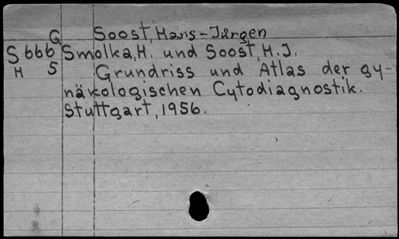 G Soost, Hans-Jürgen
S 666 Smolka, H. und Soost, H.J.
H 5 Grundriss und Atlas der gy-
näkologischen Cytodiagnostik.
Stuttgart, 1956.